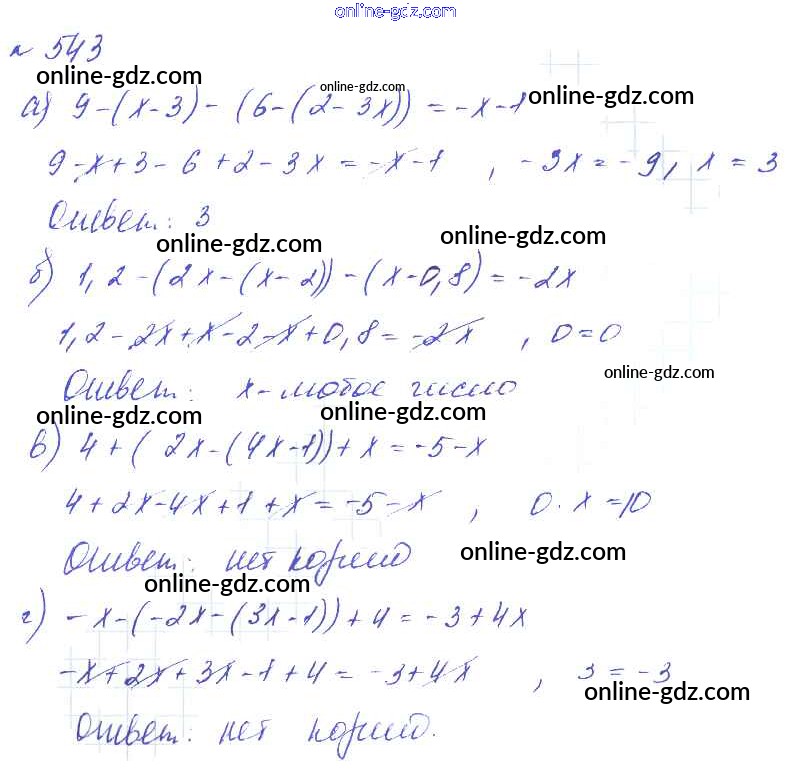 online-gdz.com
№ 543
online-gdz.com online-gdz.com online-gdz.com
а) 9-(x-3)-(6-(2-3x)) = -x-1
9-x+3-6+2-3x = -x-1 , -3x = -9, x = 3
Ответ: 3
online-gdz.com online-gdz.com
б) 1,2-(2x-(x-2))-(x-0,8) = -2x
1,2-2x+x-2-x+0,8 = -2x , 0=0
online-gdz.com
Ответ: x-любое число
online-gdz.com online-gdz.com
в) 4+(2x-(4x-1))+x = -5-x
4+2x-4x+1+x = -5-x , 0·x = 10
Ответ: нет корней
online-gdz.com
online-gdz.com
г) -x-(-2x-(3x-1))+4 = -3+4x
-x+2x+3x-1+4 = -3+4x , 3 = -3
online-gdz.com
Ответ: нет корней.